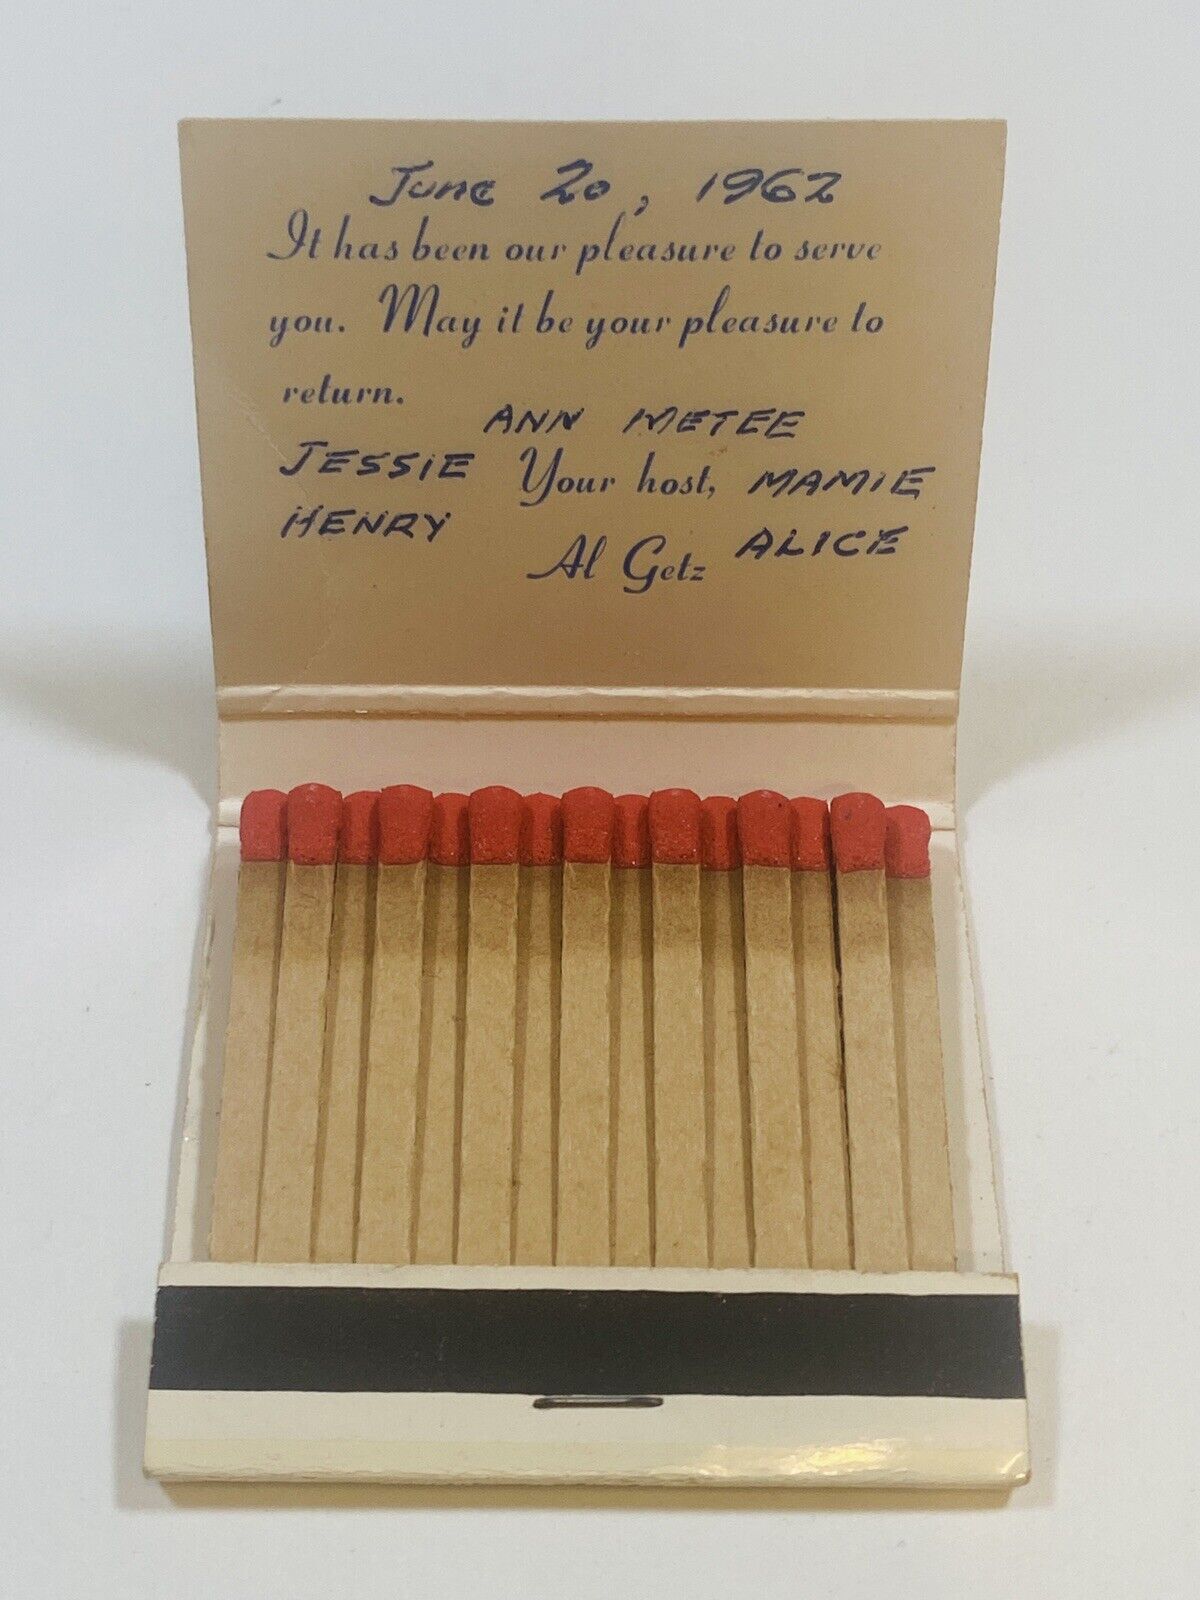 June 20, 1962
It has been our pleasure to serve
you. May it be your pleasure to
return.
ANN METEE
JESSIE Your host, MAMIE
HENRY Al Getz ALICE